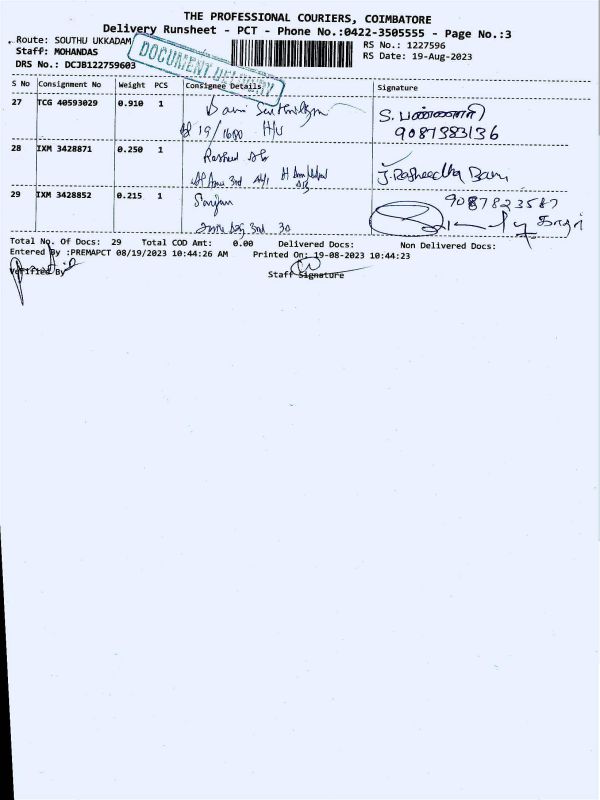 THE PROFESSIONAL COURIERS, COIMBATORE
Delivery Runsheet - PCT - Phone No.:0422-3505555 - Page No.:3
Route: SOUTHU UKKADAM
RS No.: 1227596
Staff: MOHANDAS
RS Date: 19-Aug-2023
DRS No.: DCJB122759603
DOCUMENT DELIVERY
S No Consignment No Weight PCS Consignee Details Signature
27 TCG 40593029 0.910 1
S. பண்ணாரி
19/1680 H/U
9087383136
28 IXM 3428871 0.250 1 Rasheed
J. Rasheedha Banu
29 IXM 3428852 0.215 1
9087823587
3rd 30
Total No. Of Docs: 29 Total COD Amt: 0.00 Delivered Docs: Non Delivered Docs:
Entered By :PREMAPCT 08/19/2023 10:44:26 AM Printed On: 19-08-2023 10:44:23
Verified By
Staff Signature